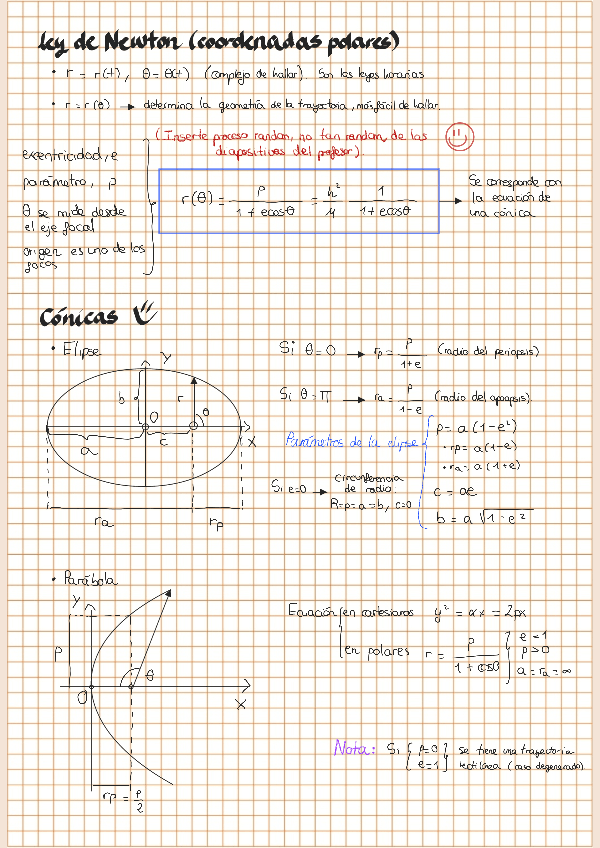 Ley de Newton (coordenadas polares)
• r = r(t), θ = θ(t) (complejo de hallar). Son las leyes horarias
• r = r(θ) → determina la geometría de la trayectoria, más fácil de hallar.
(Inserte proceso random, no tan random, de las
diapositivas del profesor)
excentricidad, e
parámetro, p
θ se mide desde
el eje focal
origen es uno de los
focos
r(θ) = p / (1 + e cosθ) = h² / μ · 1 / (1 + e cosθ)
→ Se corresponde con
la ecuación de
una cónica
Cónicas
• Elipse
y
b
r
O
θ
a
c
x
ra
rp
Si θ = 0 → rp = p / (1+e) (radio del periapsis)
Si θ = π → ra = p / (1-e) (radio del apoapsis)
Parámetros de la elipse
p = a (1-e²)
• rp = a (1-e)
• ra = a (1+e)
c = ae
b = a √(1-e²)
Si e=0 → circunferencia
de radio
R=p=a=b, c=0
• Parábola
y
p
θ
O
x
rp = p/2
Ecuación en cartesianas y² = αx = 2px
en polares r = p / (1 + cosθ)
e = 1
p > 0
a = ra = ∞
Nota: Si { p=0
e=1 } se tiene una trayectoria
rectilínea (caso degenerado)